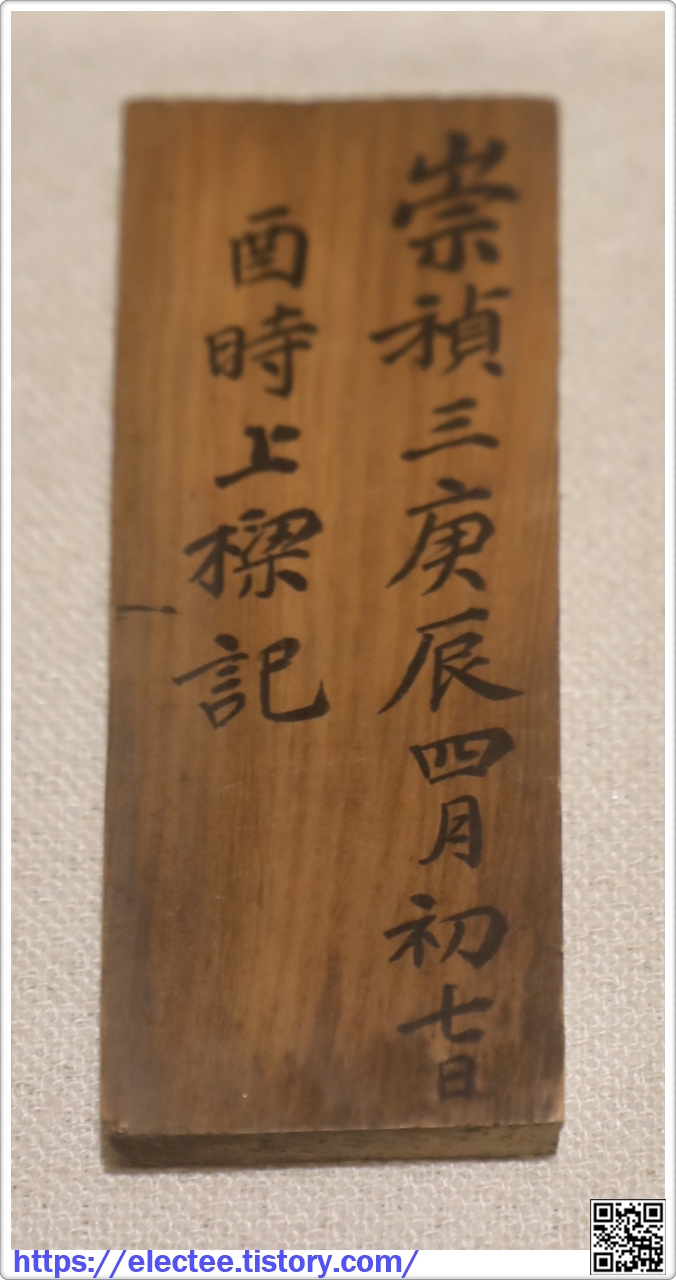 崇禎三庚辰四月初七日
酉時上樑記
https://electee.tistory.com/